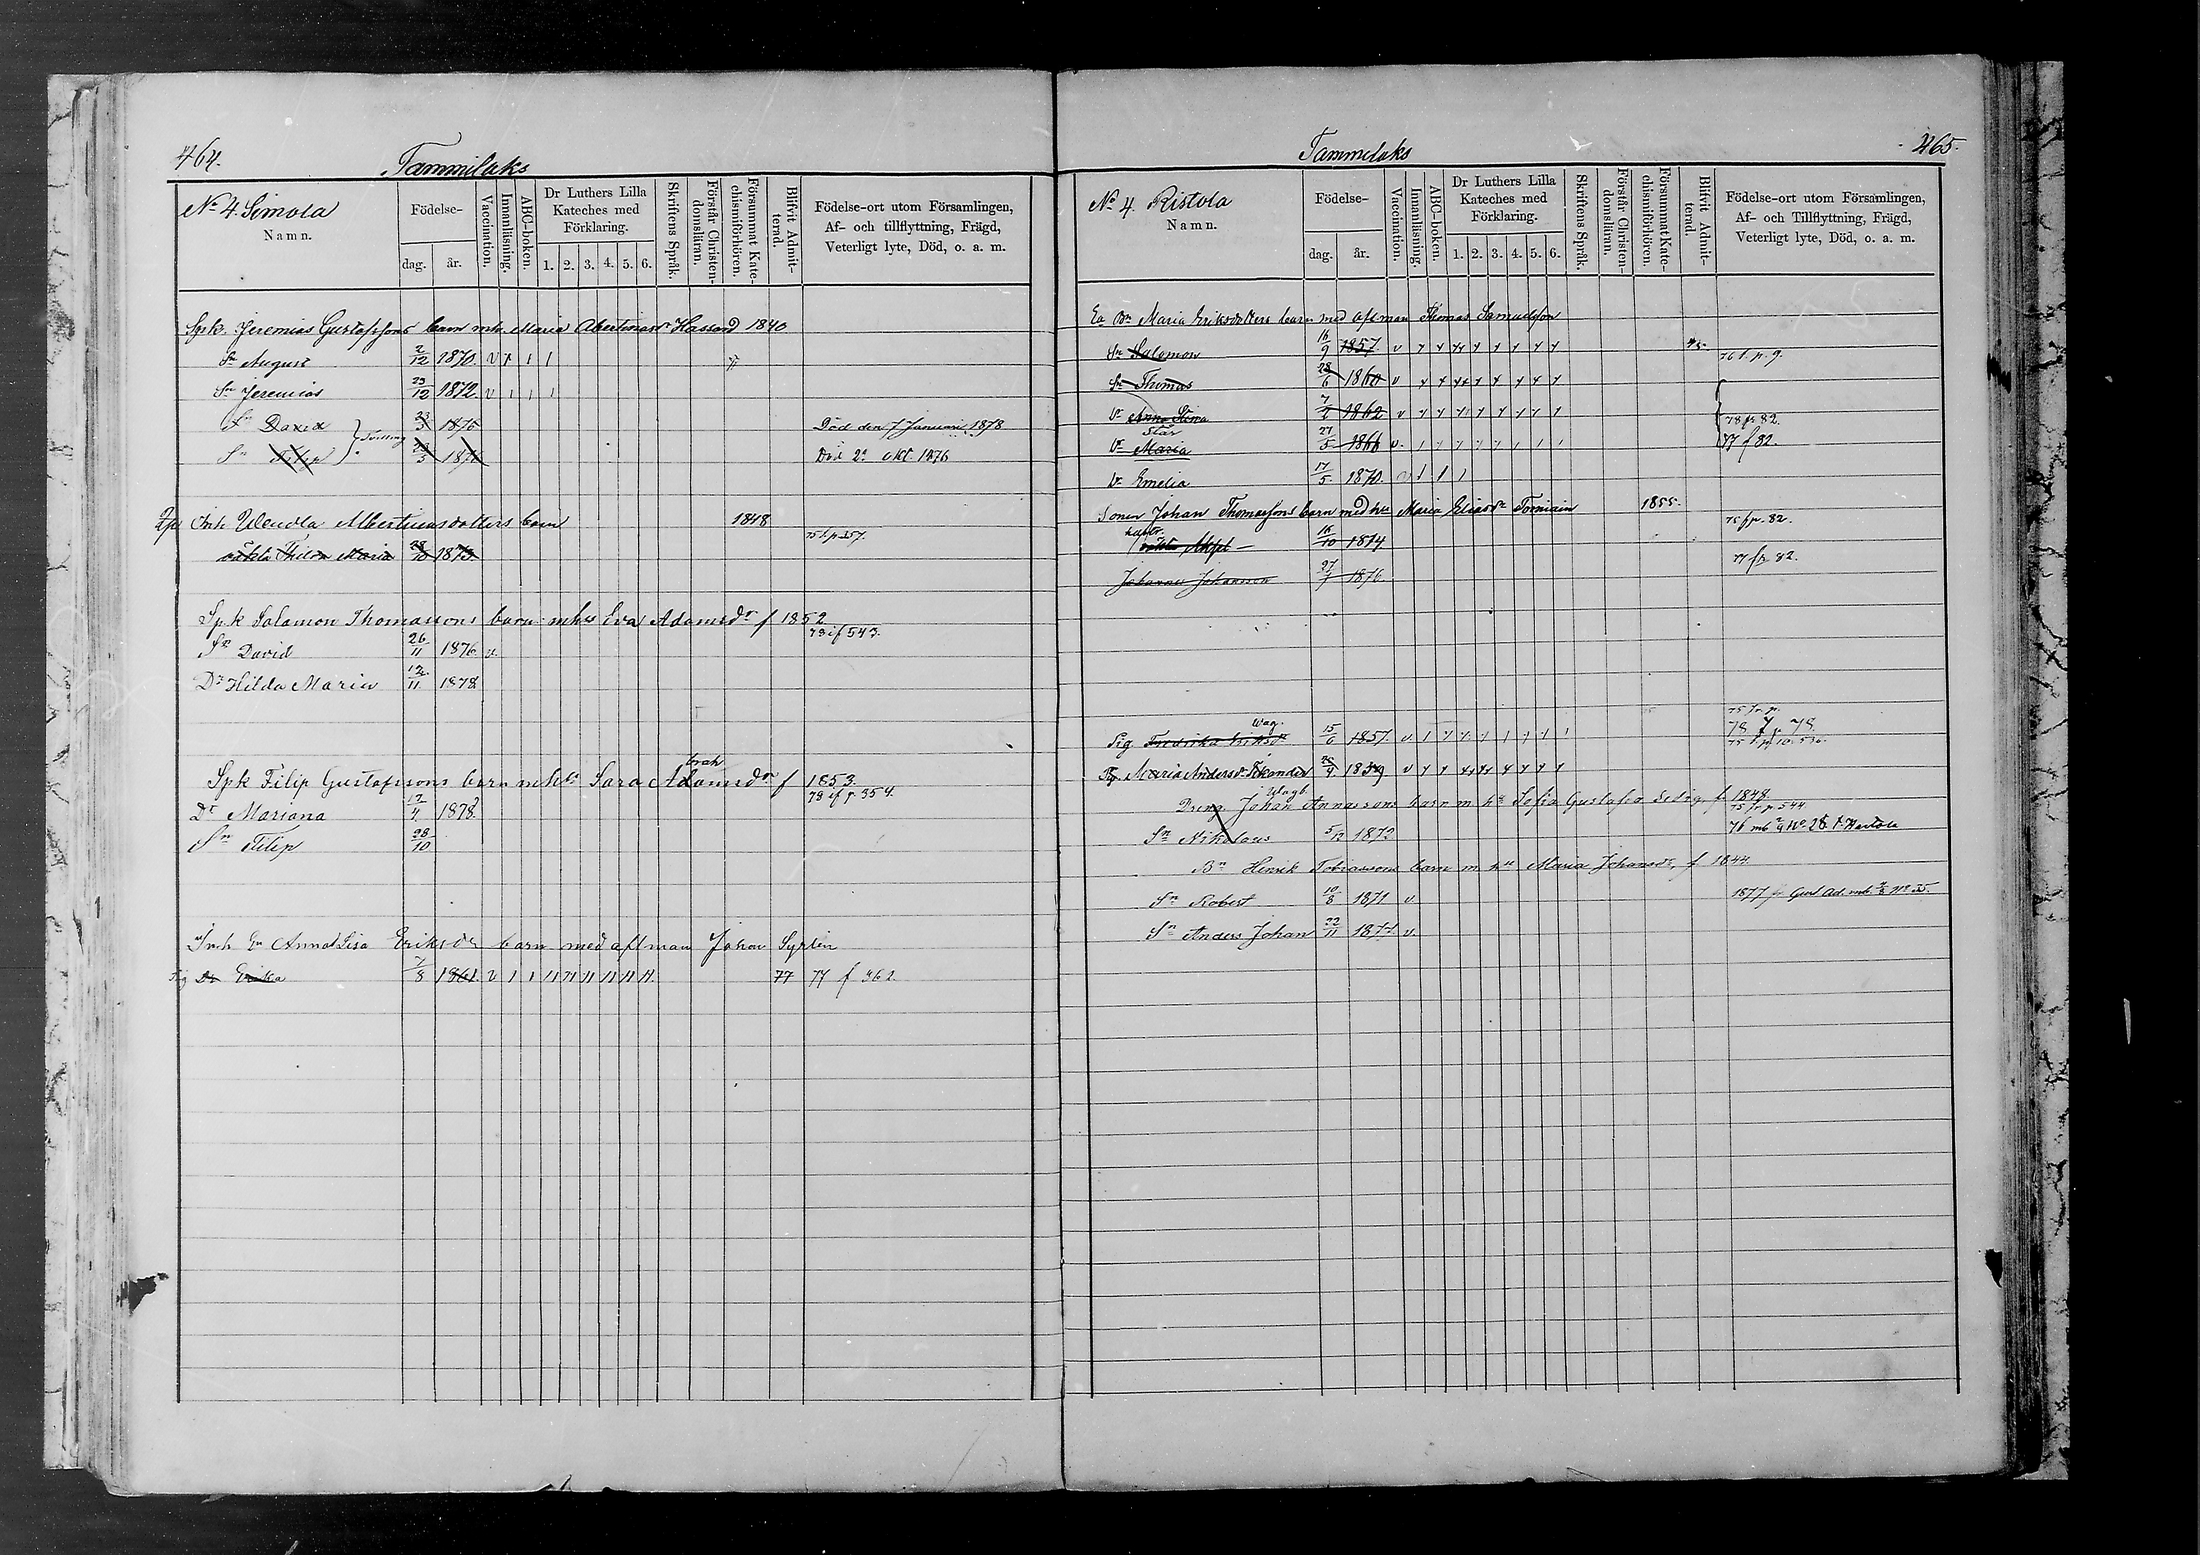 464.
Tammilaks
No 4. Simola
Namn.
Födelse-
dag.
år.
Vaccination.
Innanläsning.
ABC-boken.
Dr Luthers Lilla Kateches med Förklaring.
1. 2. 3. 4. 5. 6.
Skriftens Språk.
Förstår Christendomsläran.
Försummat Katechismiförhören.
Blifvit Admitterad.
Födelse-ort utom Församlingen,
Af- och tillflyttning, Frägd,
Veterligt lyte, Död, o. a. m.
Spk. Jeremias Gustafssons barn mh. Maria Hassand 1840
Sn August 2/12 1870. v
Sn Jeremias 23/12 1872. v
Sn David 23/3 1876 Död den 7 Januari 1878
Sn Filip 23/3 1876 Död 2 okt. 1876
Inh Wendla Albertinasdotters barn 1848
oäkta Maria 28/10 1873. 75 f. p 357.
Spk Salomon Thomassons barn mhu Eva Adamsdr f 1852
78 if 543.
Sn David 26/11 1876 v.
Dr Hilda Maria 12/11 1878.
Spk Filip Gustafssons barn mhu Sara Adamsdr f 1853.
78 if p. 354.
Dr Mariana 17/4 1878.
Sn Filip 28/10
Inh Anna Lisa Eriksdr barn med aflman Johan Syrlin
Pig Dr Erika 7/8 1861. v 77 77 f 462.
465.
Tammilaks
No 4. Ristola
Namn.
Födelse-
dag.
år.
Vaccination.
Innanläsning.
ABC-boken.
Dr Luthers Lilla Kateches med Förklaring.
1. 2. 3. 4. 5. 6.
Skriftens Språk.
Förstår Christendomsläran.
Försummat Katechismiförhören.
Blifvit Admitterad.
Födelse-ort utom Församlingen,
Af- och Tillflyttning, Frägd,
Veterligt lyte, Död, o. a. m.
Maria Eriksdotters barn med aflman Thomas Samuelson
Sn Salomon 16/9 1857 v 76 f. p. 9.
Sn Thomas 28/6 1860 v
Dr Anna Stina 1862 v 78 fp 82.
Dr Maria 27/5 1866 v. 77 f 82.
Dr Emelia 17/5 1870.
Sonen Johan Thomassons barn med hu Maria Eliasdr Torniain 1855.
75 fp. 82.
Axel 16/10 1874
Johannes Johansson 27/7 1876. 77 fp. 82.
Pig Fredrika Eriksdr 15/6 1857. v
Pig. Maria Andersdr Tikander 1839 v
Dreng Johan Annassons barn m hu Sofia Gustafva f. 1848.
75 f. p. 544.
Sn Nikolaus 5/12 1872
Bn Henrik Tobiassons barn m hu Maria Johansdr, f 1844.
Sn Robert 10/8 1871 v.
Sn Anders Johan 22/11 1874. v.